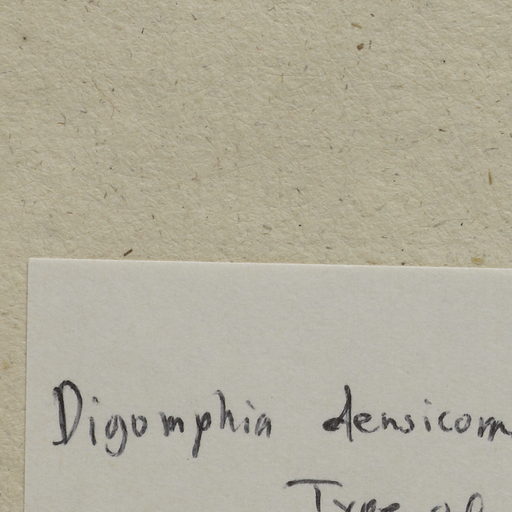 Digomphia densicom
Type of